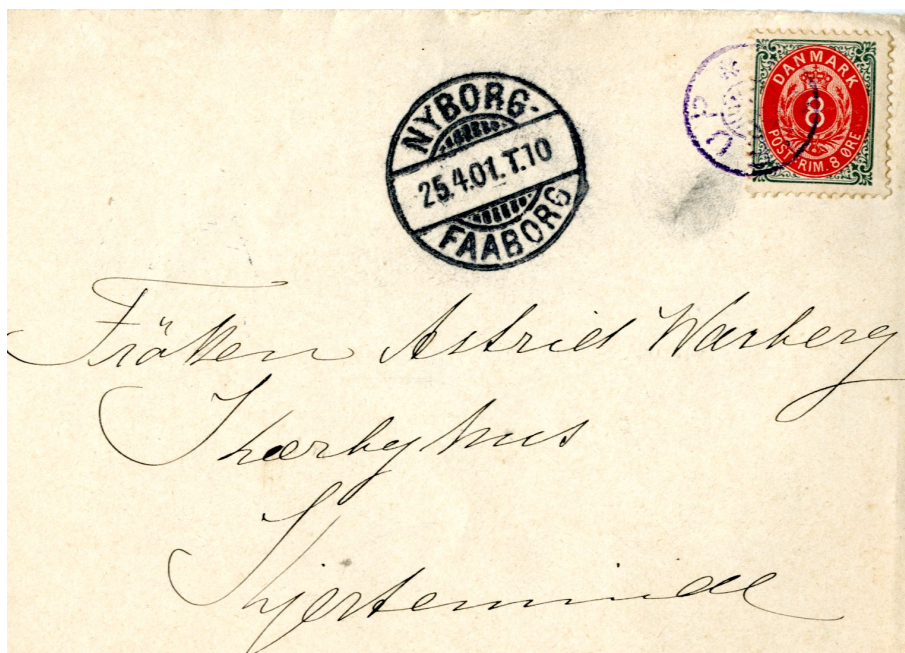 NYBORG-
25.4.01.T.10
FAABORG
DANMARK
8
POSTFRIM. 8 ØRE
Fröken Astrid Warberg
Kærbyhus
Kjerteminde